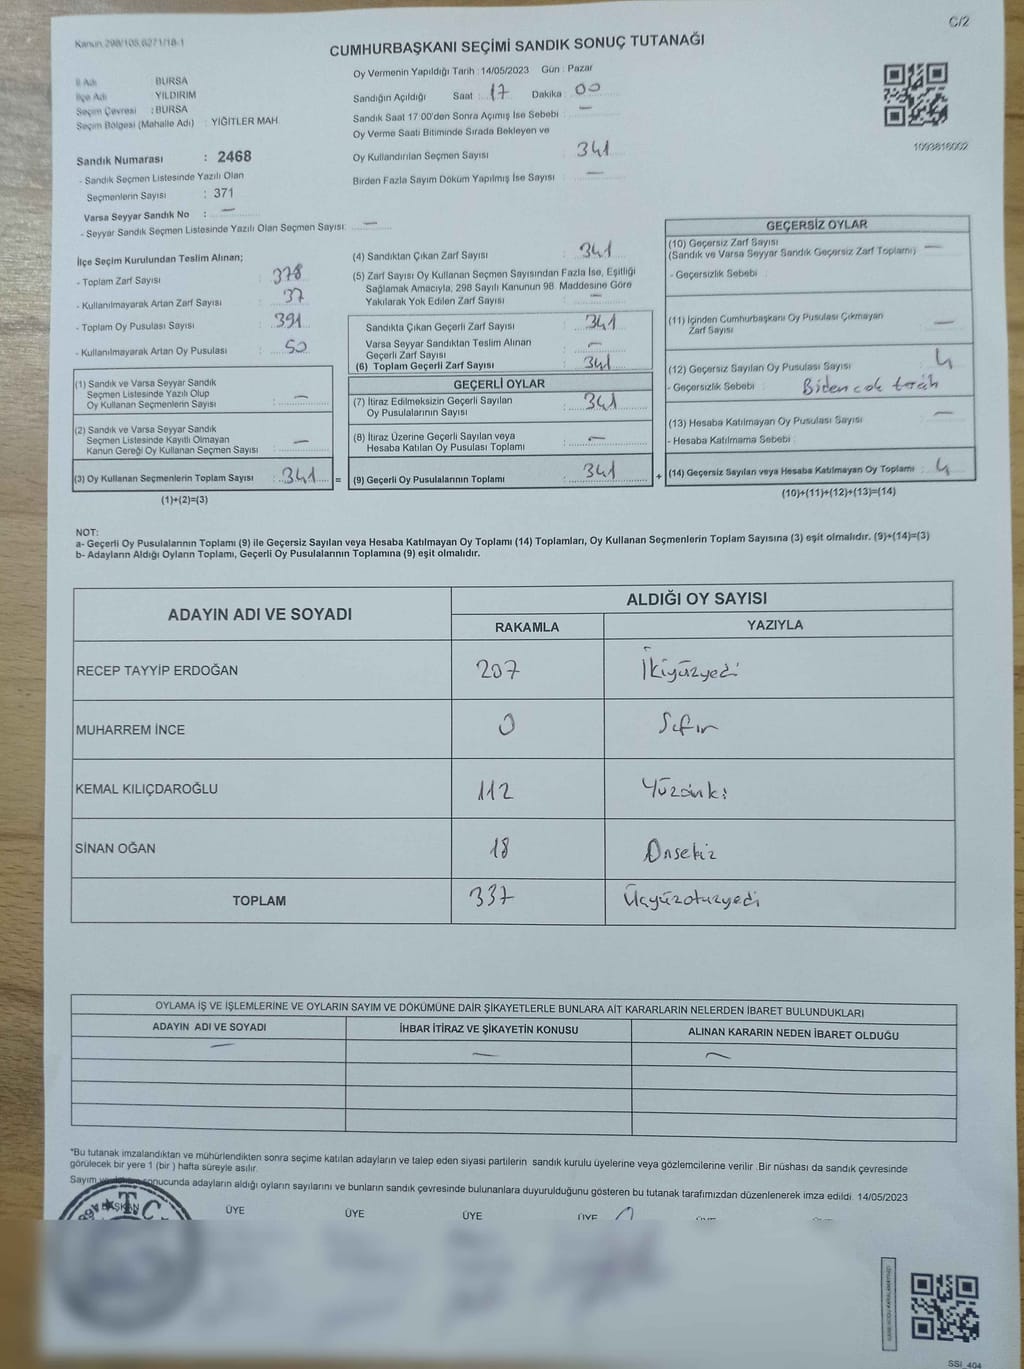 Kanun 298/105,6271/18-1
C/2
CUMHURBAŞKANI SEÇİMİ SANDIK SONUÇ TUTANAĞI
İl Adı BURSA
İlçe Adı YILDIRIM
Seçim Çevresi : BURSA
Seçim Bölgesi (Mahalle Adı) : YİĞİTLER MAH.
Sandık Numarası : 2468
- Sandık Seçmen Listesinde Yazılı Olan
Seçmenlerin Sayısı : 371
Varsa Seyyar Sandık No : —
- Seyyar Sandık Seçmen Listesinde Yazılı Olan Seçmen Sayısı: —
Oy Vermenin Yapıldığı Tarih : 14/05/2023 Gün : Pazar
Sandığın Açıldığı Saat : 17 Dakika : 00
Sandık Saat 17:00'den Sonra Açımış İse Sebebi : —
Oy Verme Saati Bitiminde Sırada Bekleyen ve
Oy Kullandırılan Seçmen Sayısı : 341
Birden Fazla Sayım Döküm Yapılmış İse Sayısı : —
1093816002
İlçe Seçim Kurulundan Teslim Alınan;
- Toplam Zarf Sayısı : 378
- Kullanılmayarak Artan Zarf Sayısı : 37
- Toplam Oy Pusulası Sayısı : 391
- Kullanılmayarak Artan Oy Pusulası : 50
(1) Sandık ve Varsa Seyyar Sandık
Seçmen Listesinde Yazılı Olup
Oy Kullanan Seçmenlerin Sayısı : —
(2) Sandık ve Varsa Seyyar Sandık
Seçmen Listesinde Kayıtlı Olmayan
Kanun Gereği Oy Kullanan Seçmen Sayısı : —
(3) Oy Kullanan Seçmenlerin Toplam Sayısı : 341 =
(1)+(2)=(3)
(4) Sandıktan Çıkan Zarf Sayısı : 341
(5) Zarf Sayısı Oy Kullanan Seçmen Sayısından Fazla İse, Eşitliği
Sağlamak Amacıyla, 298 Sayılı Kanunun 98. Maddesine Göre
Yakılarak Yok Edilen Zarf Sayısı : —
Sandıkta Çıkan Geçerli Zarf Sayısı : 341
Varsa Seyyar Sandıktan Teslim Alınan
Geçerli Zarf Sayısı : —
(6) Toplam Geçerli Zarf Sayısı : 341
GEÇERLİ OYLAR
(7) İtiraz Edilmeksizin Geçerli Sayılan
Oy Pusulalarının Sayısı : 341
(8) İtiraz Üzerine Geçerli Sayılan veya
Hesaba Katılan Oy Pusulası Toplamı : —
(9) Geçerli Oy Pusulalarının Toplamı : 341 +
GEÇERSİZ OYLAR
(10) Geçersiz Zarf Sayısı
(Sandık ve Varsa Seyyar Sandık Geçersiz Zarf Toplamı) —
- Geçersizlik Sebebi :
(11) İçinden Cumhurbaşkanı Oy Pusulası Çıkmayan
Zarf Sayısı : —
(12) Geçersiz Sayılan Oy Pusulası Sayısı : 4
- Geçersizlik Sebebi : Biden cok tercih
(13) Hesaba Katılmayan Oy Pusulası Sayısı : —
- Hesaba Katılmama Sebebi :
(14) Geçersiz Sayılan veya Hesaba Katılmayan Oy Toplamı : 4
(10)+(11)+(12)+(13)=(14)
NOT:
a- Geçerli Oy Pusulalarının Toplamı (9) ile Geçersiz Sayılan veya Hesaba Katılmayan Oy Toplamı (14) Toplamları, Oy Kullanan Seçmenlerin Toplam Sayısına (3) eşit olmalıdır. (9)+(14)=(3)
b- Adayların Aldığı Oyların Toplamı, Geçerli Oy Pusulalarının Toplamına (9) eşit olmalıdır.
ADAYIN ADI VE SOYADI ALDIĞI OY SAYISI
RAKAMLA YAZIYLA
RECEP TAYYİP ERDOĞAN 207 İkiyüzyedi
MUHARREM İNCE 0 Sıfır
KEMAL KILIÇDAROĞLU 112 Yüzoniki
SİNAN OĞAN 18 Onsekiz
TOPLAM 337 Üçyüzotuzyedi
OYLAMA İŞ VE İŞLEMLERİNE VE OYLARIN SAYIM VE DÖKÜMÜNE DAİR ŞİKAYETLERLE BUNLARA AİT KARARLARIN NELERDEN İBARET BULUNDUKLARI
ADAYIN ADI VE SOYADI İHBAR İTİRAZ VE ŞİKAYETİN KONUSU ALINAN KARARIN NEDEN İBARET OLDUĞU
— — —
*Bu tutanak imzalandıktan ve mühürlendikten sonra seçime katılan adayların ve talep eden siyasi partilerin sandık kurulu üyelerine veya gözlemcilerine verilir. Bir nüshası da sandık çevresinde
görülecek bir yere 1 (bir ) hafta süreyle asılır.
Sayım sonucunda adayların aldığı oyların sayılarını ve bunların sandık çevresinde bulunanlara duyurulduğunu gösteren bu tutanak tarafımızdan düzenlenerek imza edildi. 14/05/2023
BAŞKAN ÜYE ÜYE ÜYE ÜYE
T.C.
SSİ_404